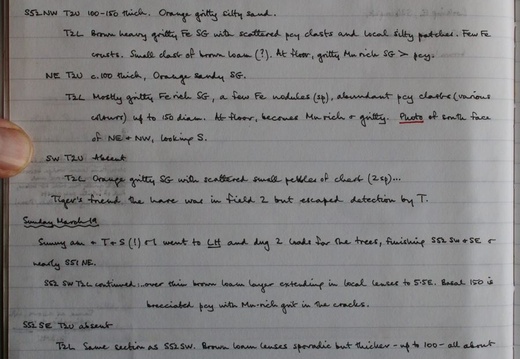 S52 NW T2U 100-150 thick. Orange gritty silty sand.
T2L Brown heavy gritty Fe SG with scattered pcy clasts and local silty patches. Few Fe
crusts. Small clast of brown loam (?). At floor, gritty Mn rich SG > pcy.
NE T2U c.100 thick, Orange sandy SG.
T2L Mostly gritty Fe rich SG, a few Fe nodules (sp), abundant pcy clasts (various
colours) up to 150 diam. At floor, becomes Mn rich & gritty. Photo of south face
of NE & NW, looking S.
SW T2U Absent
T2L Orange gritty SG with scattered small pebbles of chert (2 sp)...
Tiger's friend the hare was in field 2 but escaped detection by T.
Sunday March 19
Sunny am & T & S (!) & I went to LH and dug 2 loads for the trees, finishing S52 SW & SE &
nearly S51 NE.
S52 SW T2L continued...over thin brown loam layer extending in local lenses to 5.5E. Basal 150 is
brecciated pcy with Mn-rich grit in the cracks.
S52 SE T2U absent
T2L Same section as S52 SW. Brown loam lenses sporadic but thicker - up to 100 - all about